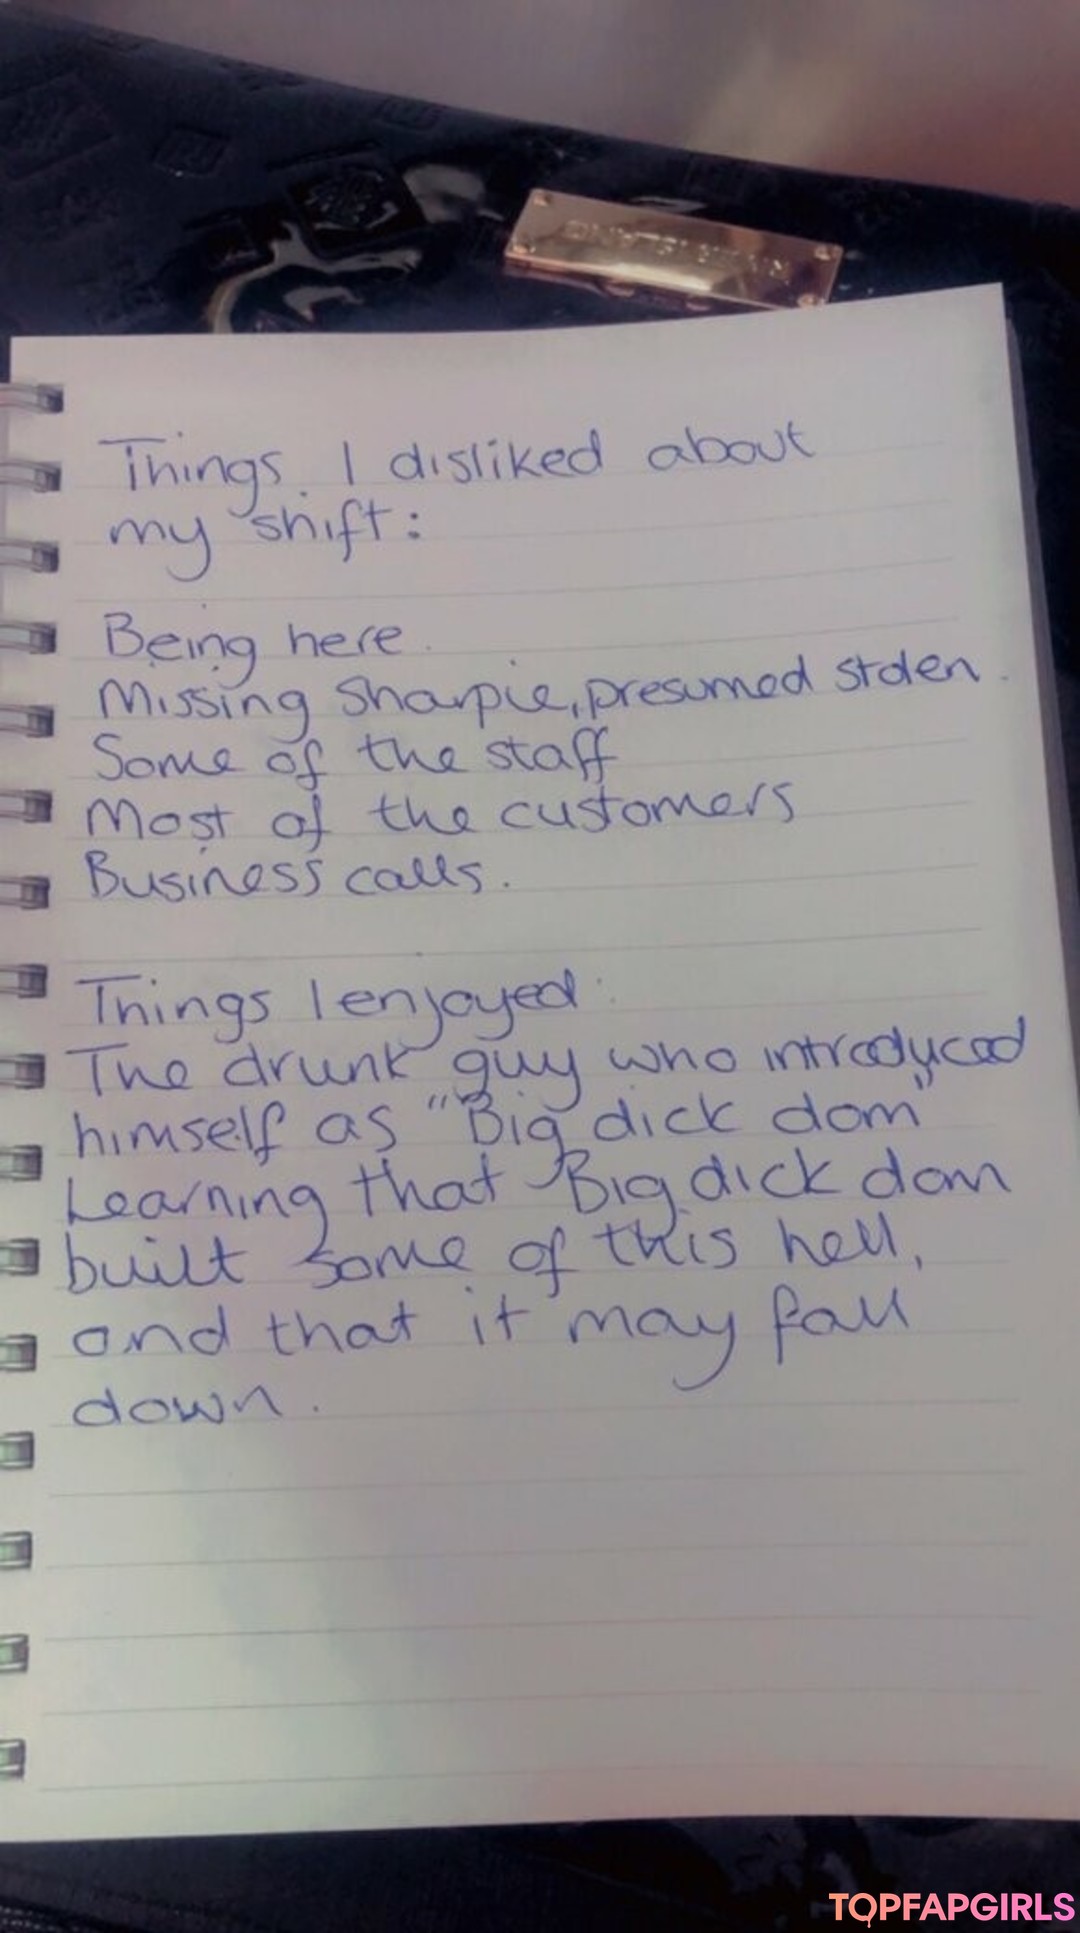 Things I disliked about
my shift:
Being here.
Missing Sharpie, presumed stolen.
Some of the staff
Most of the customers
Business calls.
Things I enjoyed:
The drunk guy who introduced
himself as "Big dick dom"
Learning that Big dick dom
built some of this hell,
and that it may fall
down.
TOPFAPGIRLS